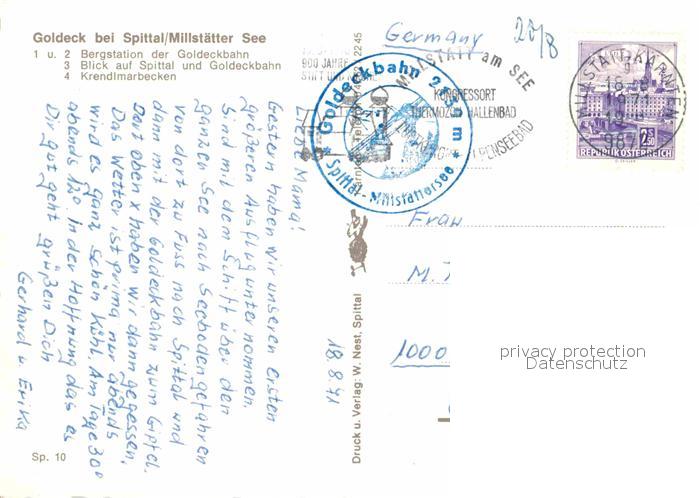 Goldeck bei Spittal/Millstätter See
1 u. 2 Bergstation der Goldeckbahn
3 Blick auf Spittal und Goldeckbahn
4 Krendlmarbecken
Liebe Mama!
Gestern haben wir unseren ersten
größeren Ausflug unternommen.
Sind mit dem Schiff über den
ganzen See nach Seeboden gefahren
von dort zu Fuss nach Spittal und
dann mit der Goldeckbahn zum Gipfel.
Dort oben x haben wir dann gegessen.
Das Wetter ist prima nur abends
wird es ganz schön kühl. Am Tage 30°
abends 12°. In der Hoffnung das es
Dir gut geht grüßen Dich
Gerhard u. Erika
18.8.71
Sp. 10
Druck u. Verlag: W. Nest, Spittal
Germany
20/8
900 JAHRE
MILLSTATT am SEE
KONGRESSORT
THERMOZON HALLENBAD
Goldeckbahn
Spittal - Millstättersee
2.50
REPUBLIK ÖSTERREICH
Frau
M.
1000
privacy protection
Datenschutz